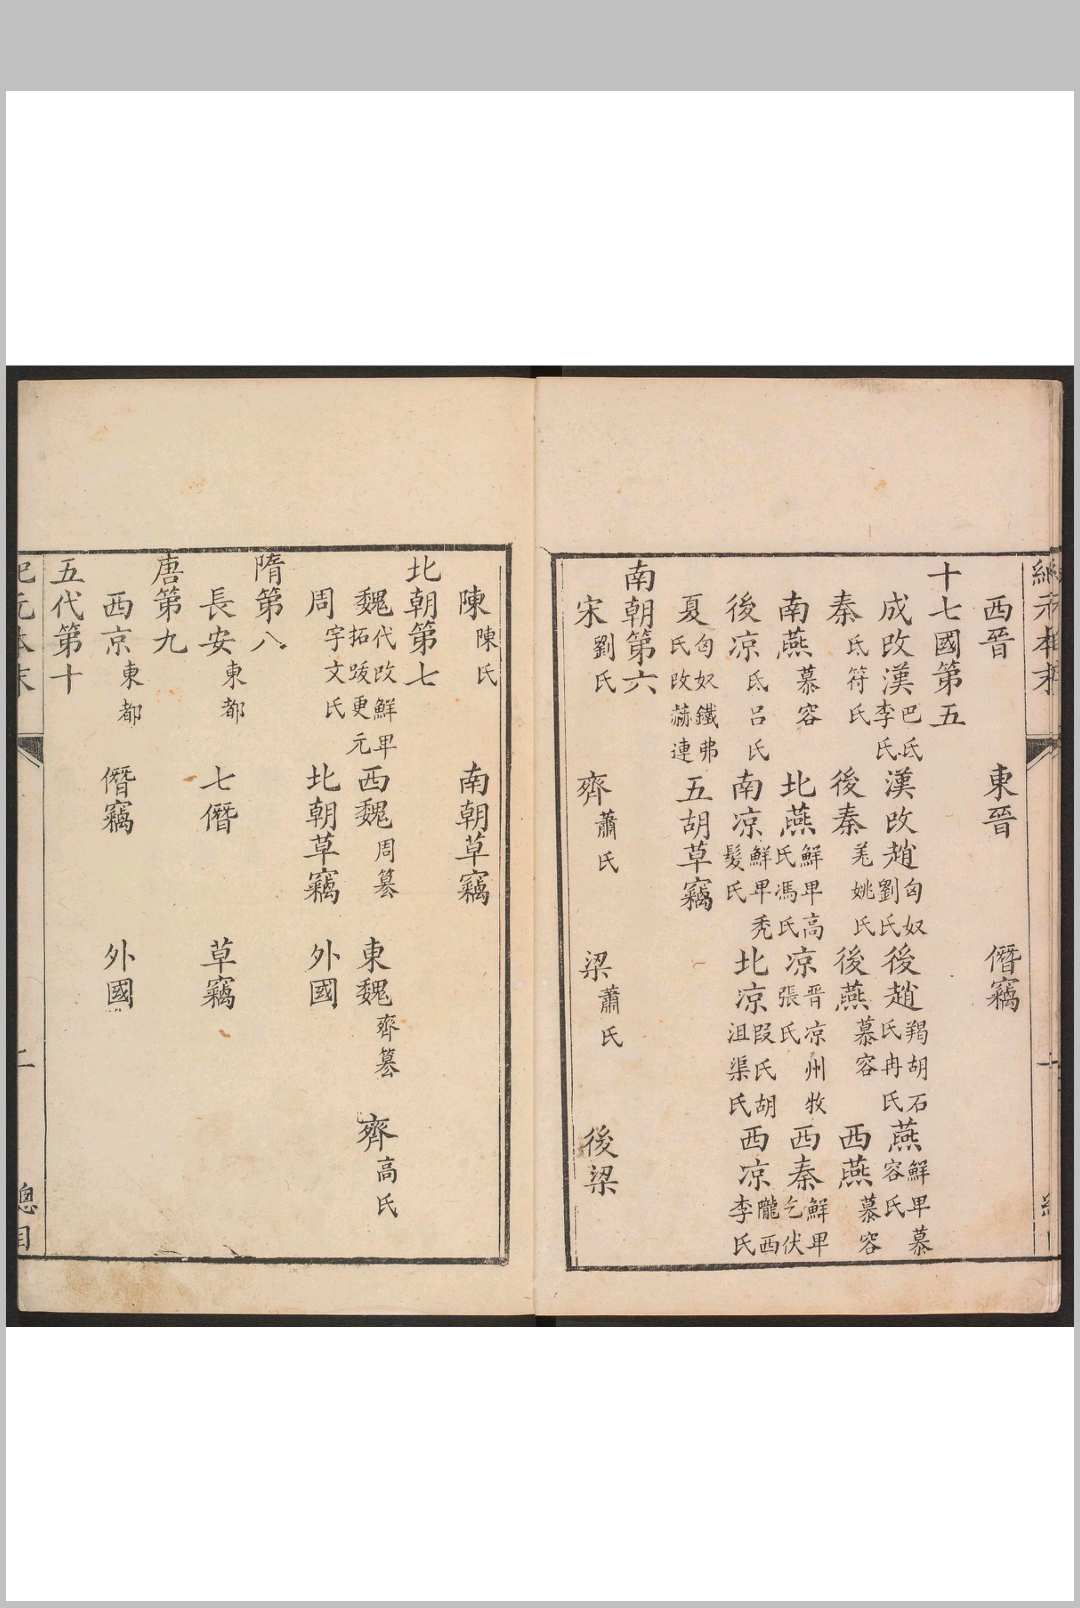 西晉　東晉　僭竊
十七國第五
成改漢巴氏李氏　漢改趙匈奴劉氏　後趙羯胡石氏冉氏　燕鮮卑慕容氏
秦氐符氏　後秦羌姚氏　後燕慕容　西燕慕容
南燕慕容　北燕鮮卑高氏馮氏　凉晉凉州牧張氏　西秦鮮卑乞伏
後凉氐呂氏　南凉鮮卑禿髮氏　北凉叚氏胡沮渠氏　西凉隴西李氏
夏匈奴鐵弗氏改赫連　五胡草竊
南朝第六
宋劉氏　齊蕭氏　梁蕭氏　後梁
陳陳氏　南朝草竊
北朝第七
魏代改鮮卑拓跋更元　西魏周篡　東魏齊篡　齊高氏
周宇文氏　北朝草竊　外國
隋第八
長安東都　七僭　草竊
唐第九
西京東都　僭竊　外國
五代第十
紀元本末　二　總目